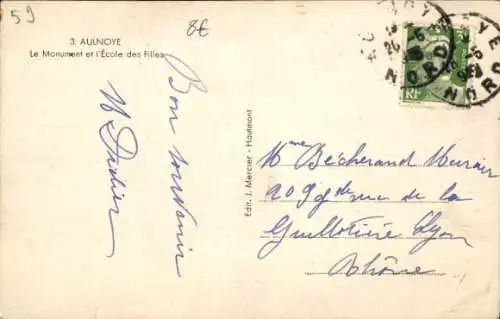 59
8€
3. AULNOYE
Le Monument et l'École des Filles
Bon souvenir
M Didier
Edit. J. Mercier - Hautmont
Mme Bécherand
209 gde rue de la
Guillotière Lyon
Rhône
NORD
NORD
RF